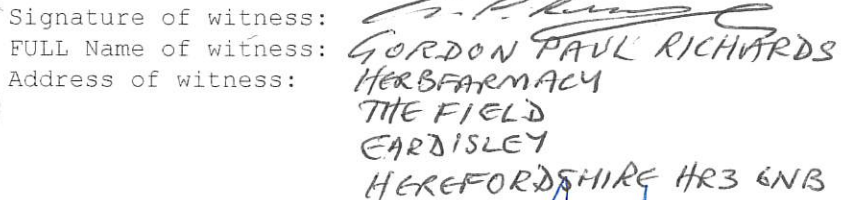 Signature of witness:
FULL Name of witness: GORDON PAUL RICHARDS
Address of witness: HERBFARMACY
THE FIELD
EARDISLEY
HEREFORDSHIRE HR3 6NB